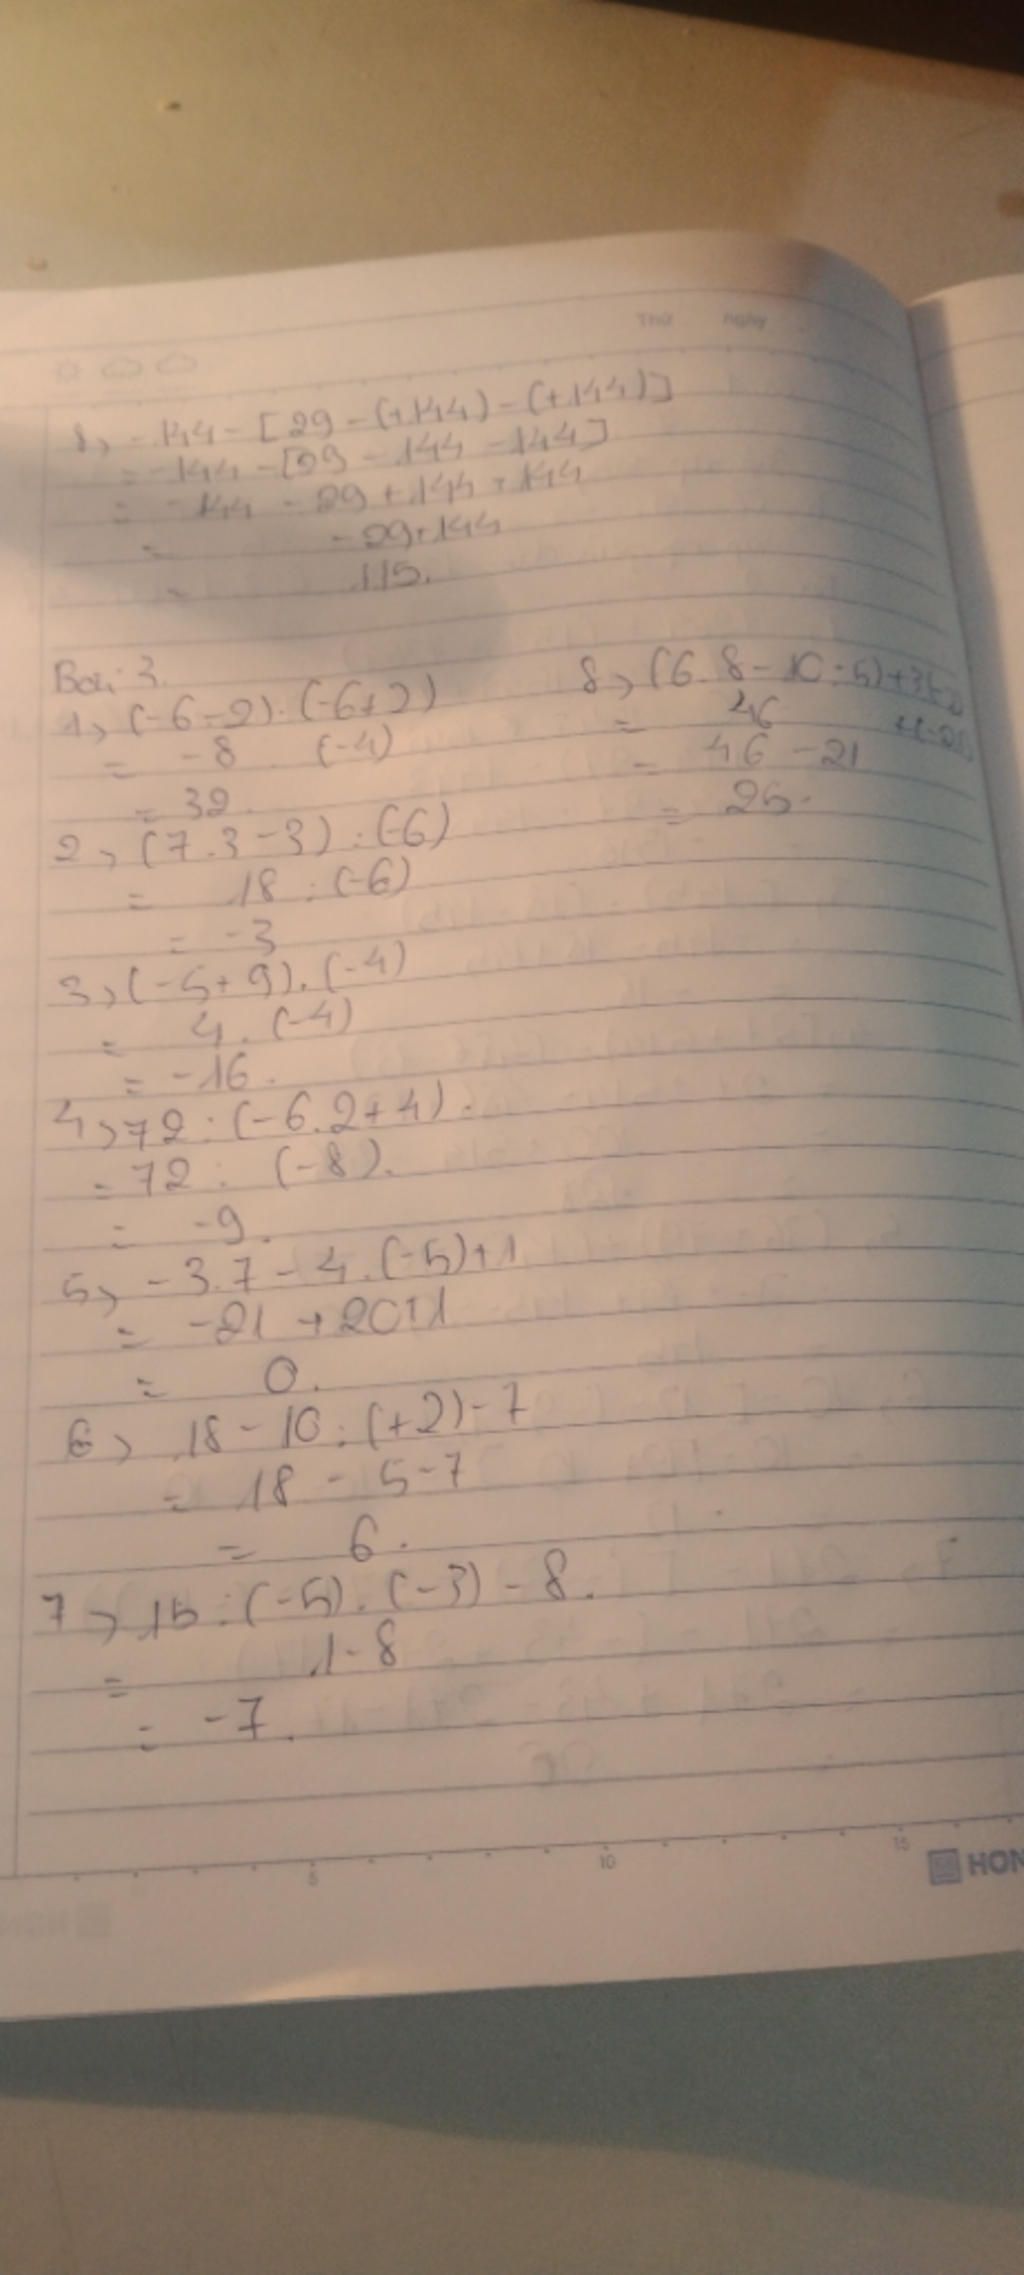 Thứ ngày
8, -144 - [29 - (+144) - (+144)]
= -144 - [29 - 144 - 144]
= -144 - 29 + 144 + 144
= -29+144
= 115.
Bài 3.
1, (-6-2).(-6+2)
= -8 (-4)
= 32.
2, (7.3-3):(-6)
= 18 : (-6)
= -3
3, (-5+9).(-4)
= 4.(-4)
= -16.
4, 72:(-6.2+4).
= 72 : (-8).
= -9.
5, -3.7-4.(-5)+1
= -21 +20+1
= 0.
6, 18-10:(+2)-7
= 18 - 5-7
= 6.
7, 15:(-5).(-3)-8.
= 1-8
= -7.
8, (6.8-10:5)+3
= 46
= 46 -21
= 25.
5 10 15
HON